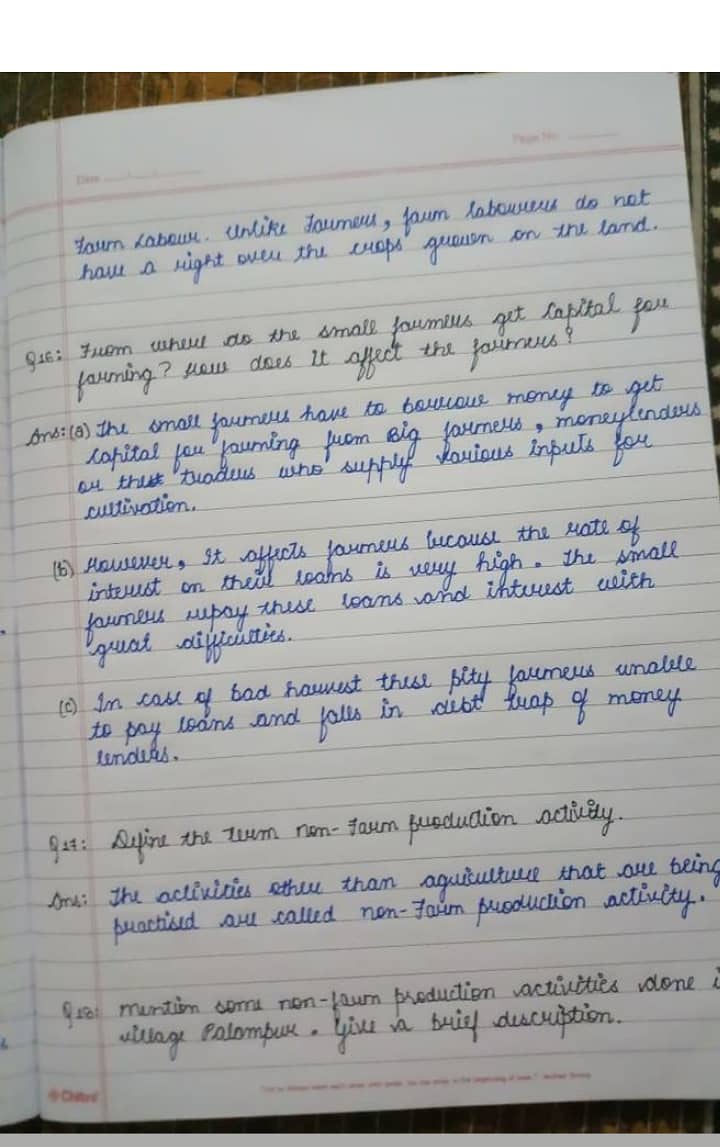 Page No.
Date
Farm Labour. Unlike Farmers, farm labourers do not
have a right over the crops grown on the land.
Q16: From where do the small farmers get Capital for
farming? How does it affect the farmers?
Ans:(a) The small farmers have to borrow money to get
capital for farming from Big farmers, moneylenders
or the traders who supply various inputs for
cultivation.
(b) However, It affects farmers because the rate of
interest on their loans is very high. The small
farmers repay these loans and interest with
great difficulties.
(c) In case of bad harvest these pity farmers unable
to pay loans and falls in debt trap of money
lenders.
Q17: Define the term non-farm production activity.
Ans: The activities other than agriculture that are being
practised are called non-Farm production activity.
Q18: mention some non-farm production activities done i
village Palampur. Give a brief description.